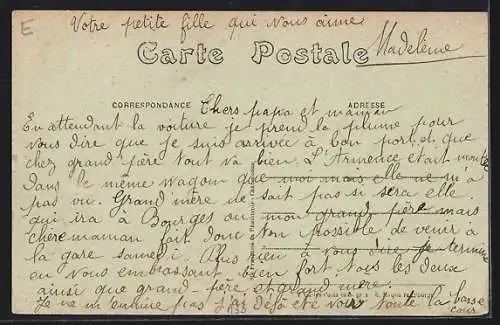 E
Votre petite fille qui vous aime
Madeleine
Carte Postale
CORRESPONDANCE
ADRESSE
Chers papa et maman
En attendant la voiture je prend la plume pour
vous dire que je suis arrivée à bon port et que
chez grand-père tout va bien. L'Armence était montée
dans le même wagon que moi mais elle ne m'a
pas vu. Grand mère ne sait pas si sera elle
qui ira à Bourges ou mon grand père mais
chère maman fait donc ton possible de venir à
la gare samedi. Plus rien à vous dire je termine
en vous embrassant bien fort tous les deux
ainsi que grand-père et grand mère.
Je ne m'ennuie pas j'ai déjà été voir toute la basse
cour